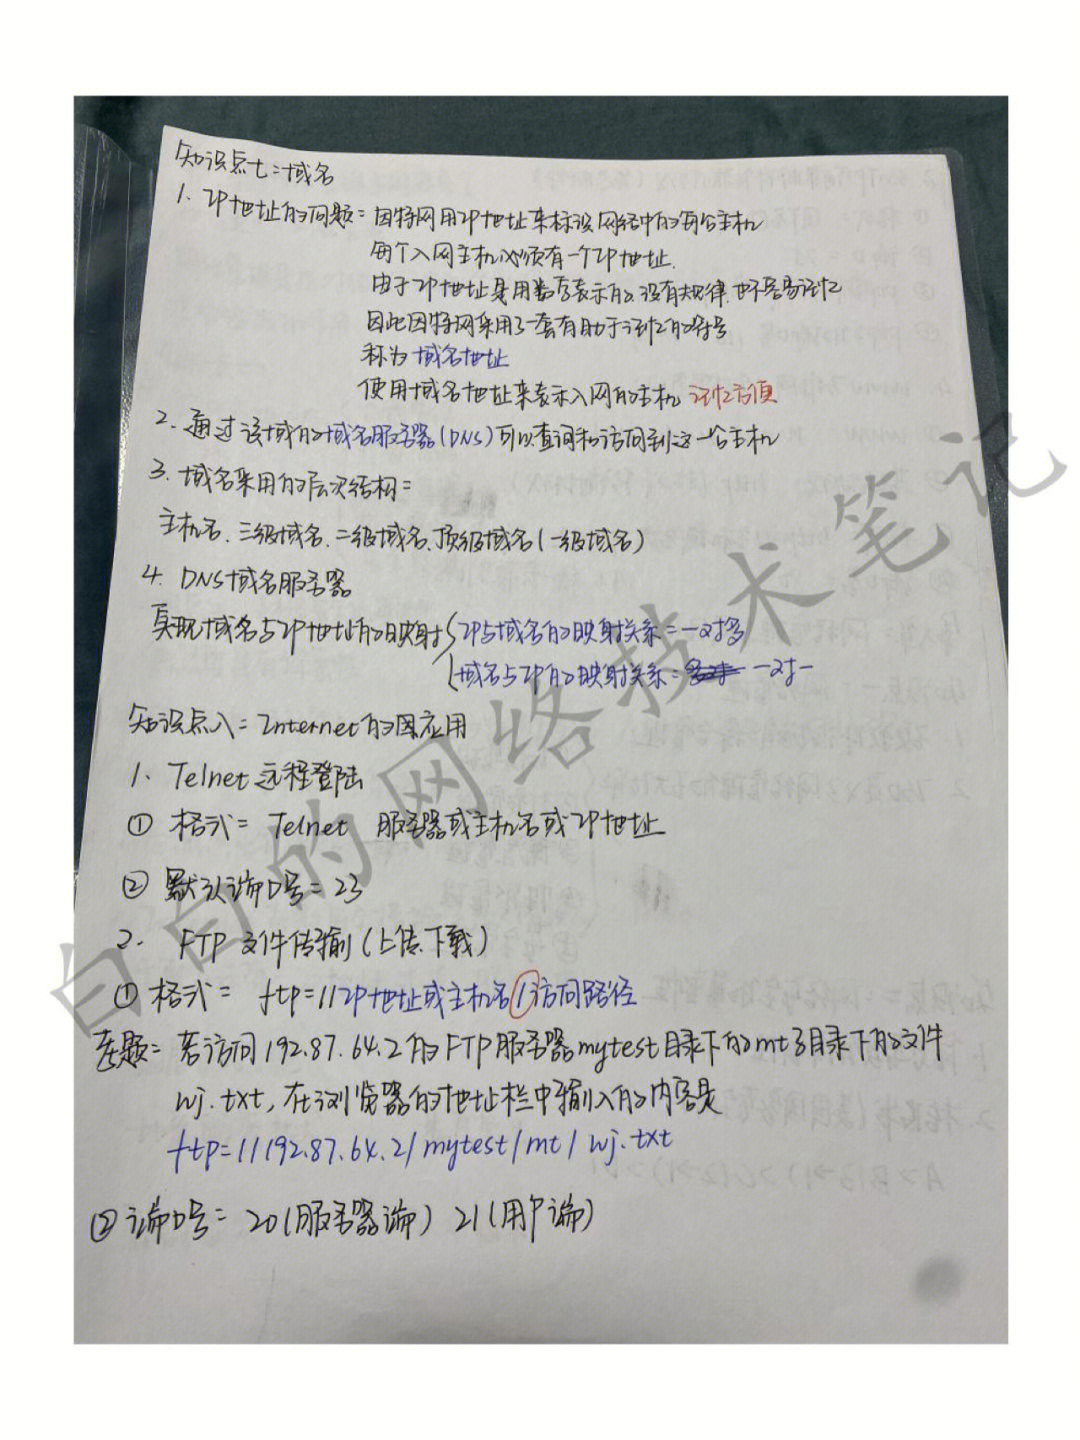 知识点七:域名
1. IP地址的问题:因特网用IP地址来标识网络中的每台主机
每个入网主机必须有一个IP地址.
由于IP地址是用数字表示的,没有规律,也不容易记忆
因此因特网采用了一套有助于记忆的符号
称为域名地址
使用域名地址来表示入网的主机 记忆方便
2. 通过该域的域名服务器(DNS)可以查询和访问到这一台主机
3. 域名采用的层次结构:
主机名、三级域名、二级域名、顶级域名(一级域名)
4. DNS域名服务器
实现域名与IP地址的映射 IP与域名的映射关系:一对多
域名与IP的映射关系: 一对一
知识点八:Internet的应用
1、Telnet 远程登陆
① 格式: Telnet 服务器或主机名或IP地址
② 默认端口号:23
2. FTP 文件传输(上传、下载)
①格式: ftp://IP地址或主机名/访问路径
考题:若访问192.87.64.2的FTP服务器mytest目录下的mt子目录下的文件
wj.txt, 在浏览器的地址栏中输入的内容是
ftp://192.87.64.2/mytest/mt/wj.txt
② 端口号: 20(服务器端) 21(用户端)
白白的网络技术笔记